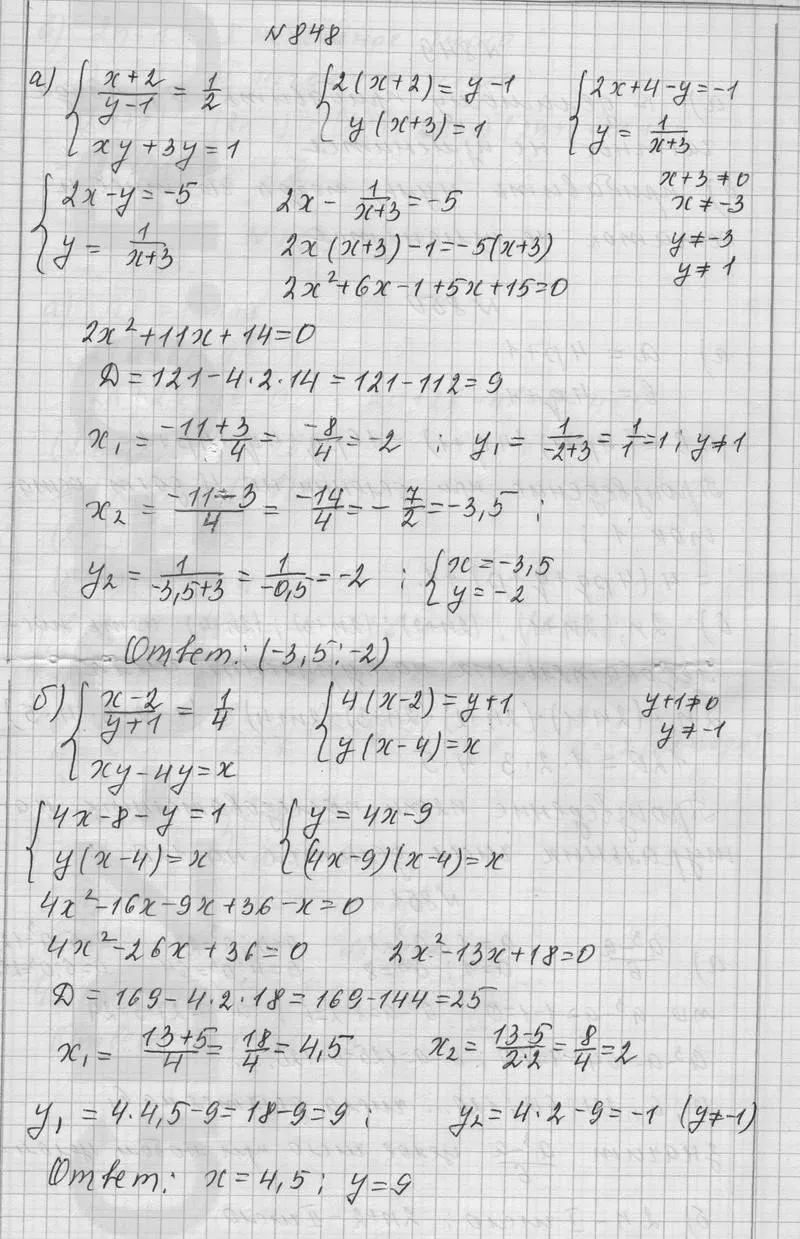 N848
а) { (x+2)/(y-1) = 1/2 { 2(x+2) = y-1 { 2x+4-y=-1
xy+3y=1 y(x+3)=1 y = 1/(x+3)
{ 2x-y=-5 2x - 1/(x+3) = -5 x+3≠0
x≠-3
y = 1/(x+3) 2x(x+3)-1=-5(x+3) y≠-3
y≠1
2x²+6x-1+5x+15=0
2x²+11x+14=0
Д = 121-4·2·14 = 121-112 = 9
x₁ = (-11+3)/4 = -8/4 = -2 ; y₁ = 1/(-2+3) = 1/1 = 1 ; y≠1
x₂ = (-11-3)/4 = -14/4 = -7/2 = -3,5 ;
y₂ = 1/(-3,5+3) = 1/(-0,5) = -2 ; { x=-3,5
y=-2
Ответ: (-3,5 ; -2)
б) { (x-2)/(y+1) = 1/4 { 4(x-2) = y+1 y+1≠0
xy-4y=x y(x-4)=x y≠-1
{ 4x-8-y=1 { y = 4x-9
y(x-4)=x (4x-9)(x-4)=x
4x²-16x-9x+36-x=0
4x²-26x+36=0 2x²-13x+18=0
Д = 169-4·2·18 = 169-144 = 25
x₁ = (13+5)/4 = 18/4 = 4,5 x₂ = (13-5)/(2·2) = 8/4 = 2
y₁ = 4·4,5-9 = 18-9 = 9 ; y₂ = 4·2-9 = -1 (y≠-1)
Ответ: x=4,5 ; y=9